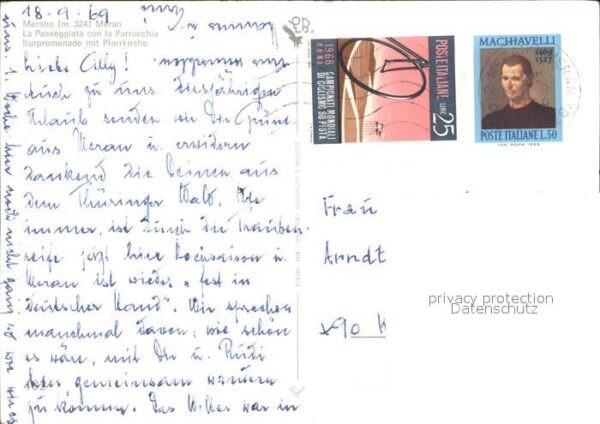 18-9-69
Merano (m. 324) Meran
La Passeggiata con la Parrocchia
Kurpromenade mit Pfarrkirche
Liebe Cilly!
Auch zu uns. diesjährigen
Urlaub senden wir Dir Grüße
aus Meran u. erwidern
dankend die Deinen aus
dem Thüringer Wald. Wie
immer, ist durch die Trauben-
reife jetzt hier Hochsaison u.
Meran ist wieder „fest in
deutscher Hand". Wir sprechen
manchmal davon, wie schön
es wäre, mit Dir u. Rudi
hier gemeinsam wandern
zu können. Das Wetter war in
uns. 1. Woche hier noch nicht ganz so wie wir es
CAMPIONATI MONDIALI
DI CICLISMO SU PISTA
1968
ROMA
POSTE ITALIANE
LIRE 25
MACHIAVELLI
1469
1527
POSTE ITALIANE L.50
Frau
Arndt
privacy protection
Datenschutz